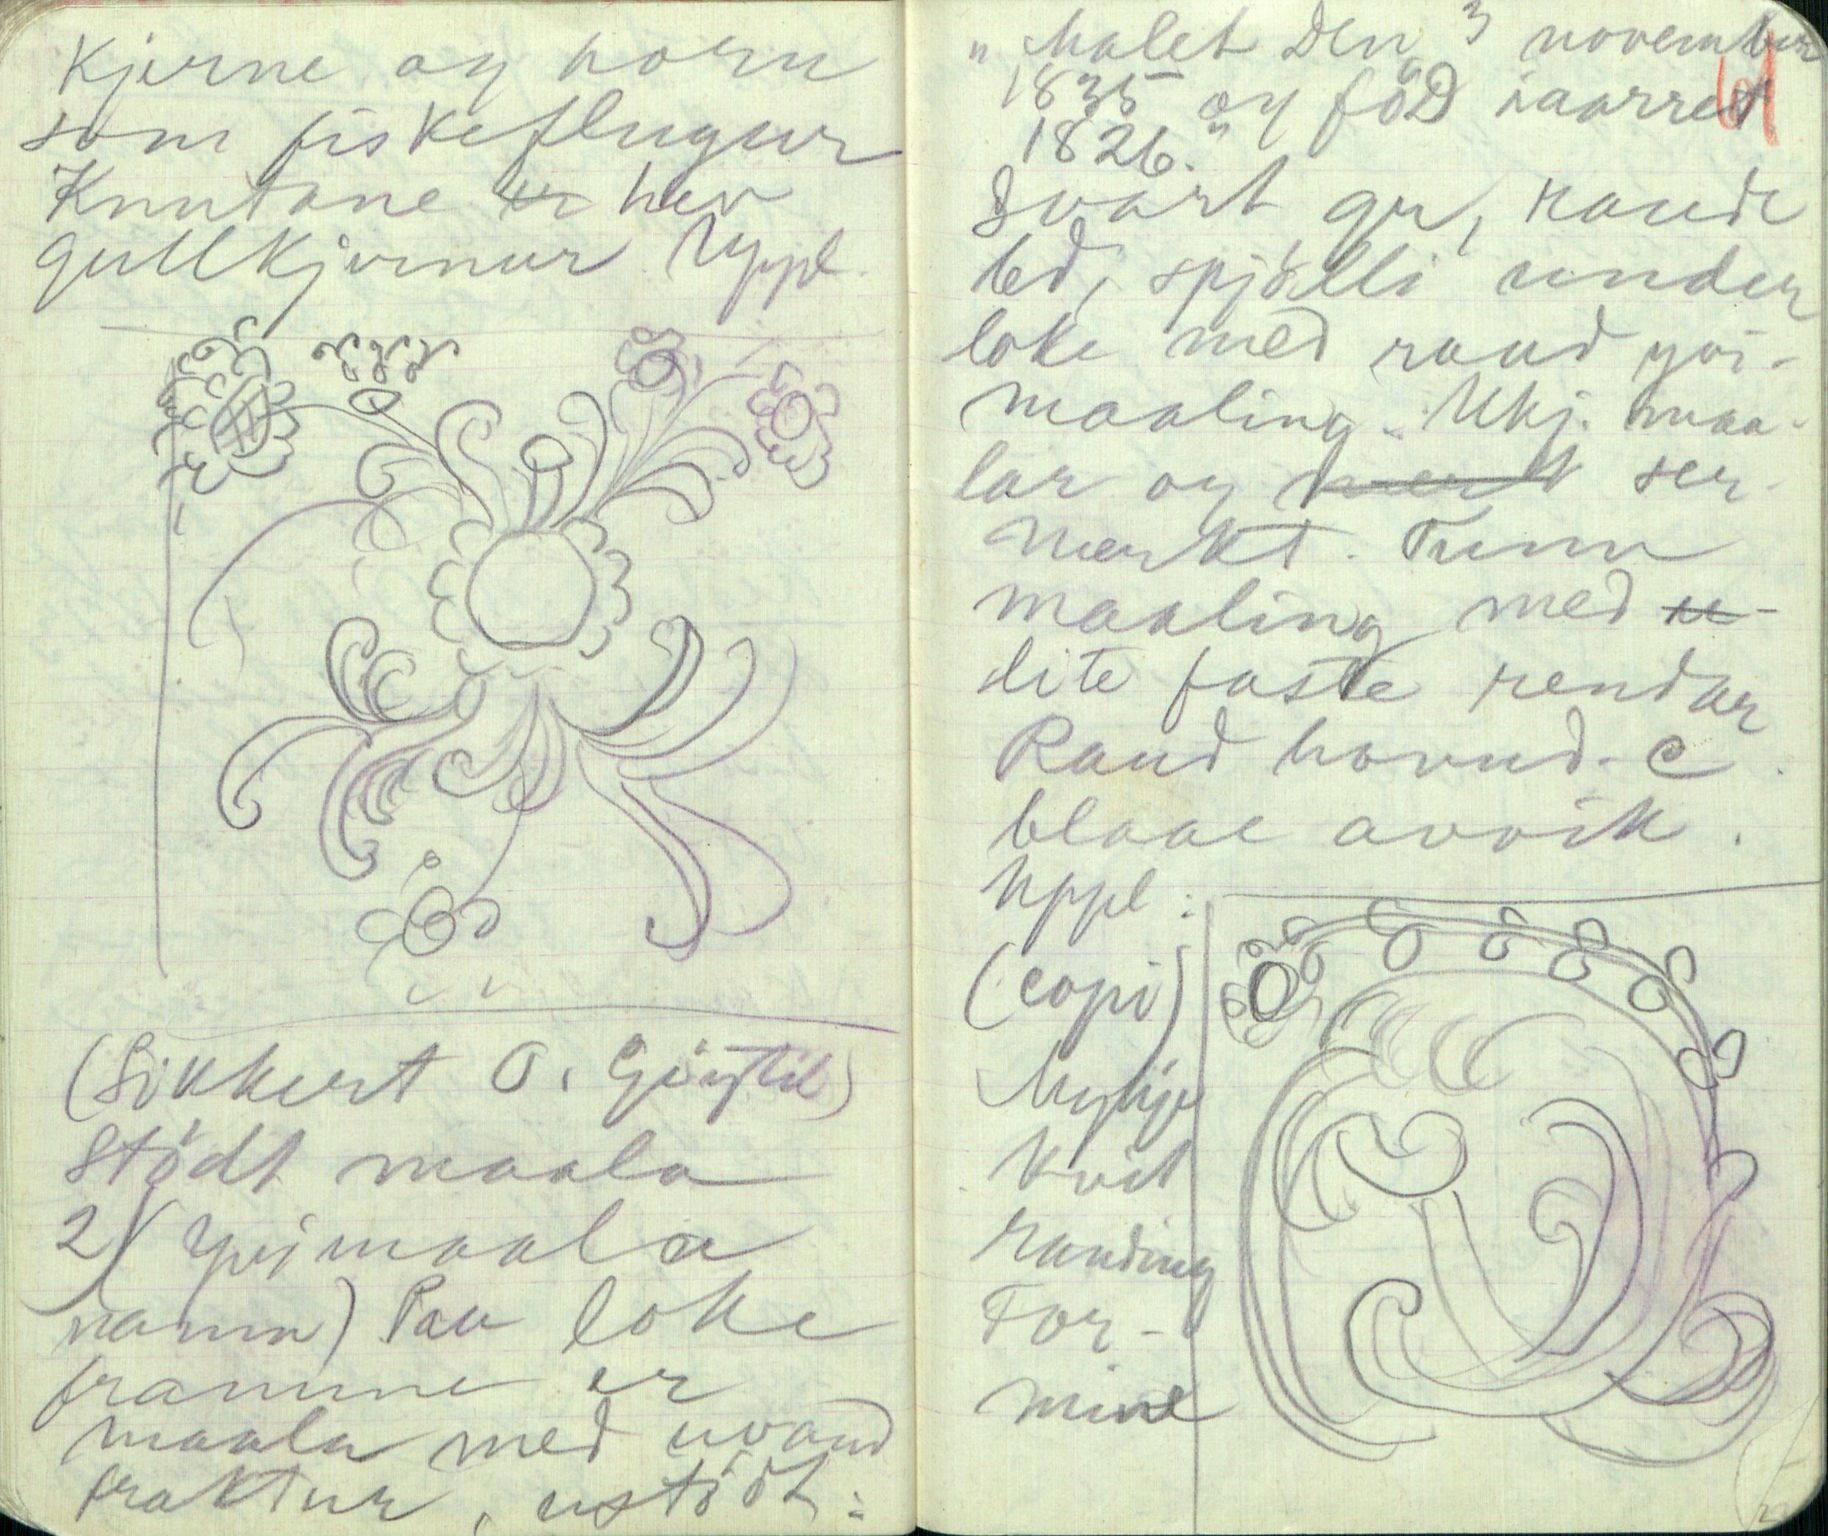 Kjerne og horn
som fiskeflugur
Knutane er hev
gullkjernur. Uppl.
(Sikkert O. )
Stödt maala
2) (yvimaala
namn) Paa loke
framme er
maala med uvand
fraktur, ustödt:
"Malet Den 3 november
1835 og föD iaarret
1826."
61
Svart gr, raude
bd, spjölli under
loke med raud yvi-
maaling. Ukj. maa-
lar og ser-
merkt. Tunn
maaling med u-
lite faste rendar
Raud hovud-C.
blaae avvik.
Uppl:
(copi)
Mykje
kvit
randing
For-
mine